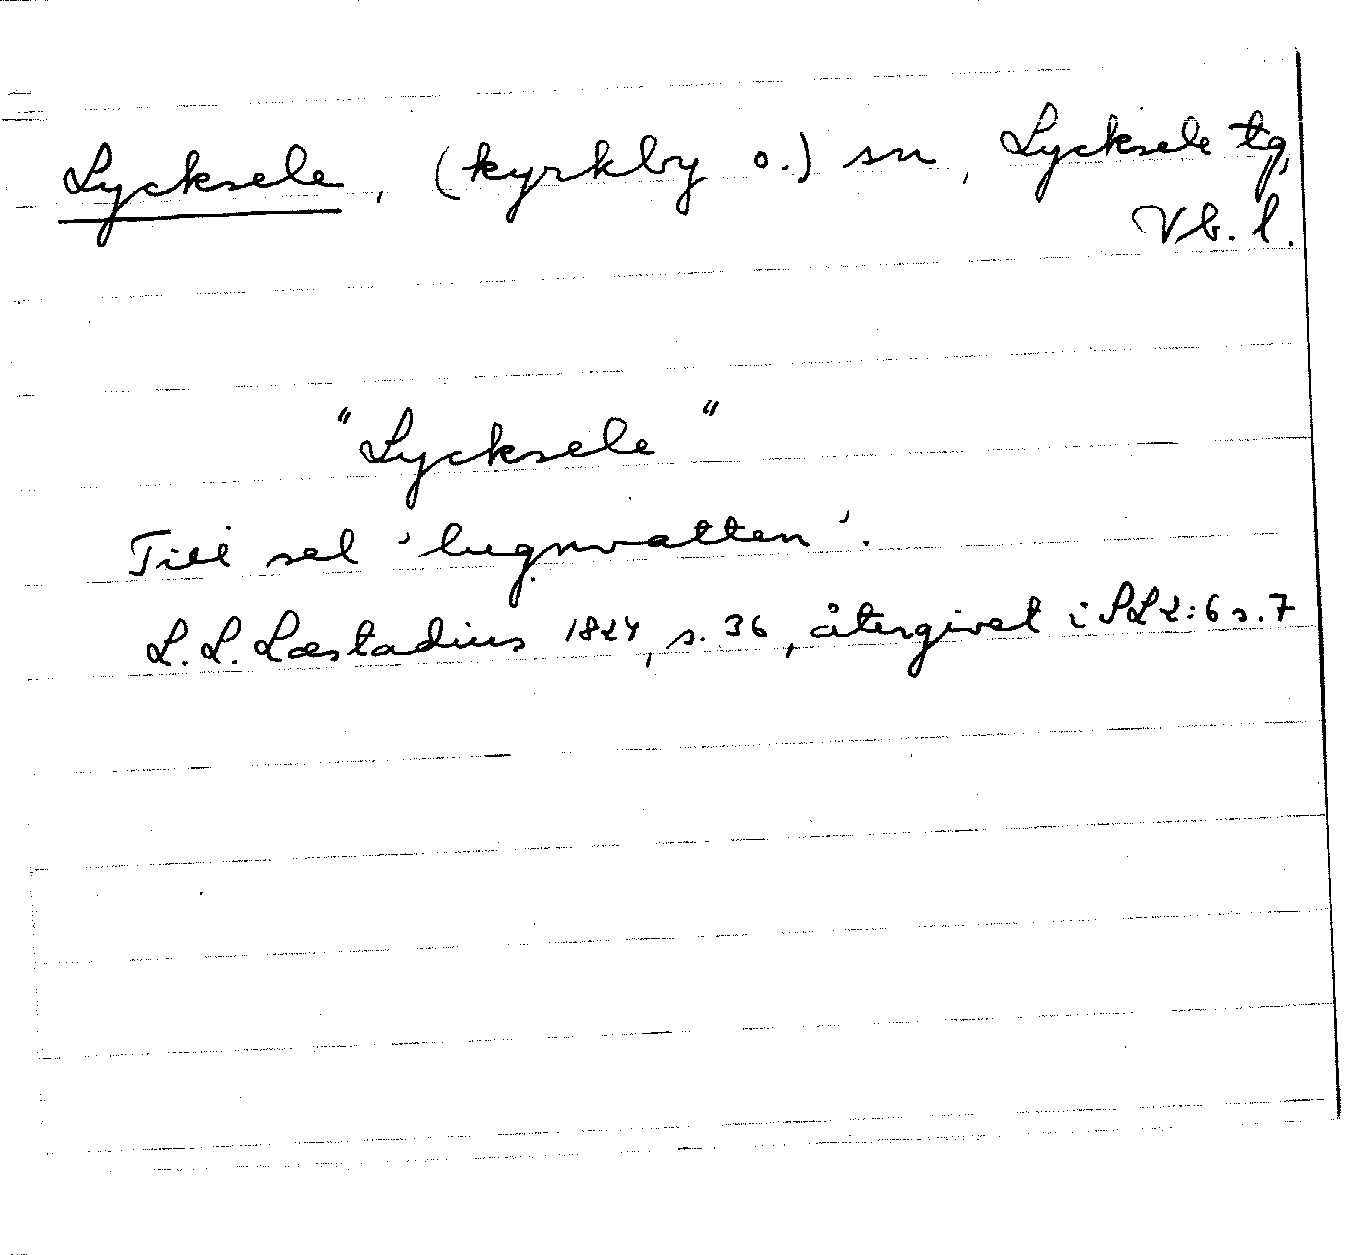 Lycksele, (kyrkby o.) sn, Lycksele tg,
Vb. l.
"Lycksele"
Till sel 'lugnvatten'.
L. L. Læstadius 1824, s. 36, återgivet i SL 2:6 s. 7